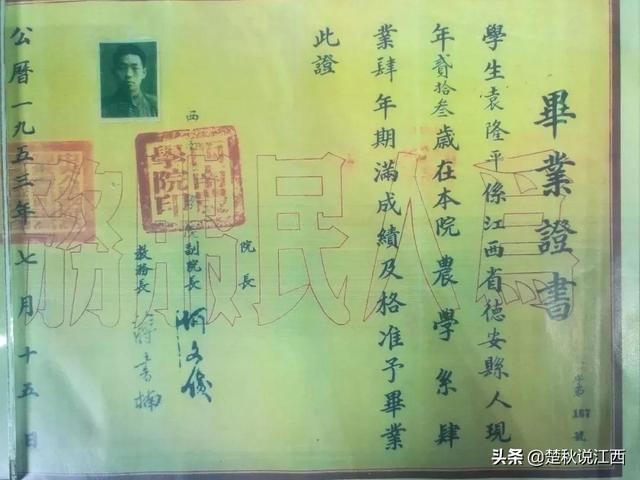 畢業證書
學第 187 號
學生袁隆平係江西省德安縣人現
年貳拾叁歲在本院農學系肆
業肆年期滿成績及格准予畢業
此證
院長
副院長
教務長
西南農學院印
公曆一九五三年七月十五日
爲人民服務
头条 @楚秋说江西